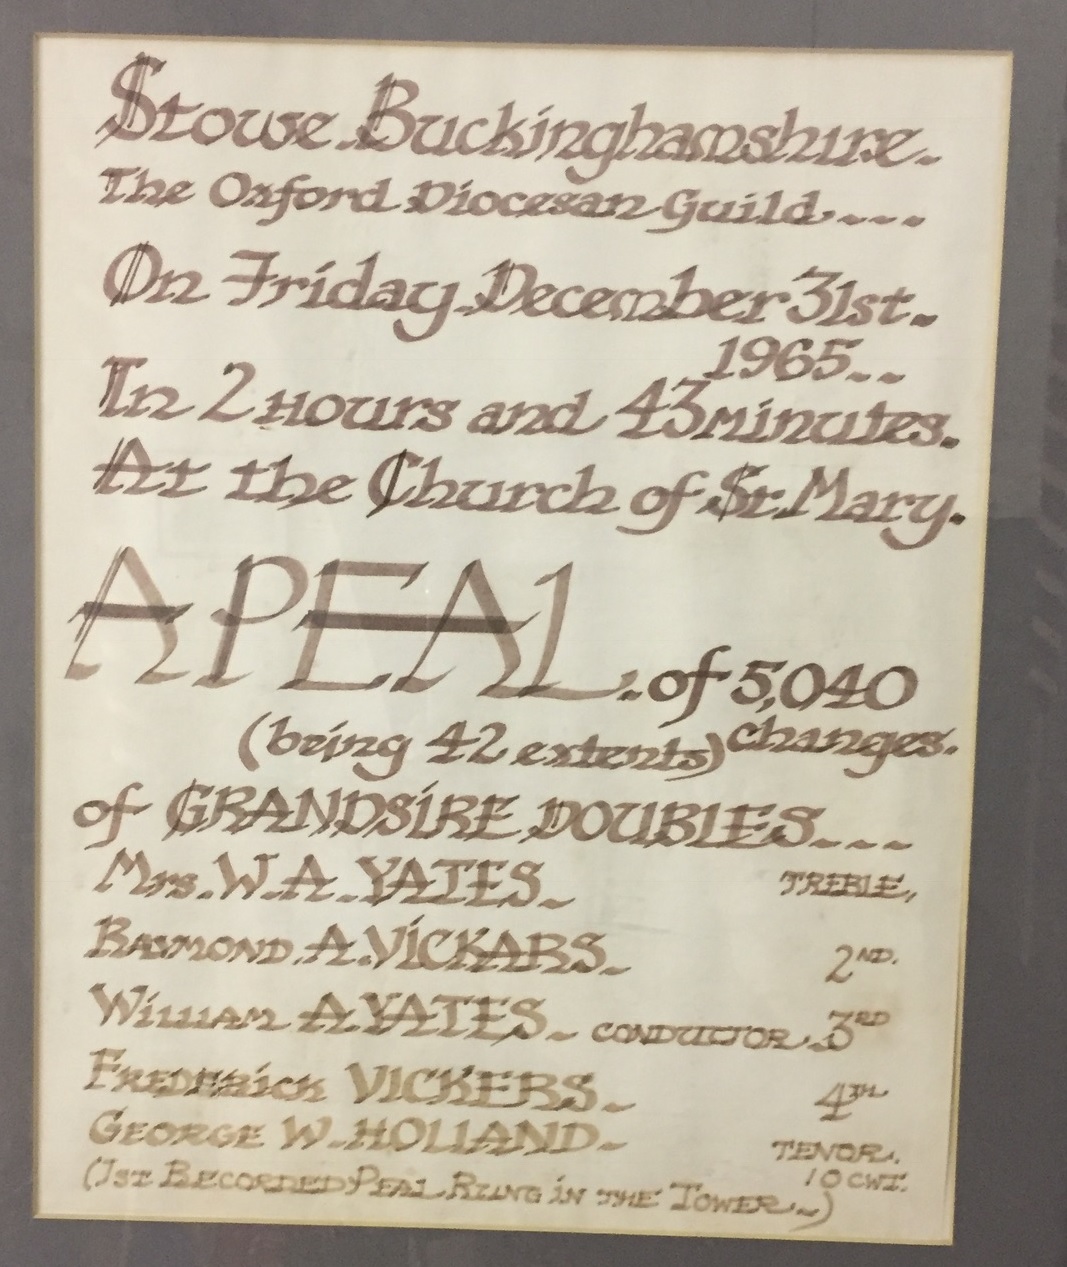 Stowe. Buckinghamshire.
The Oxford Diocesan Guild....
On Friday December 31st.
1965..
In 2 Hours and 43 minutes.
At the Church of St. Mary.
A PEAL. of 5,040
(being 42 extents) changes.
of GRANDSIRE DOUBLES....
Mrs. W. A. YATES. TREBLE.
RAYMOND. A. VICKARS. 2ND.
WILLIAM A YATES. CONDUCTOR. 3RD
FREDERICK VICKERS. 4TH
GEORGE W. HOLLAND. TENOR.
10 CWT.
(1ST RECORDED PEAL RUNG IN THE TOWER.)